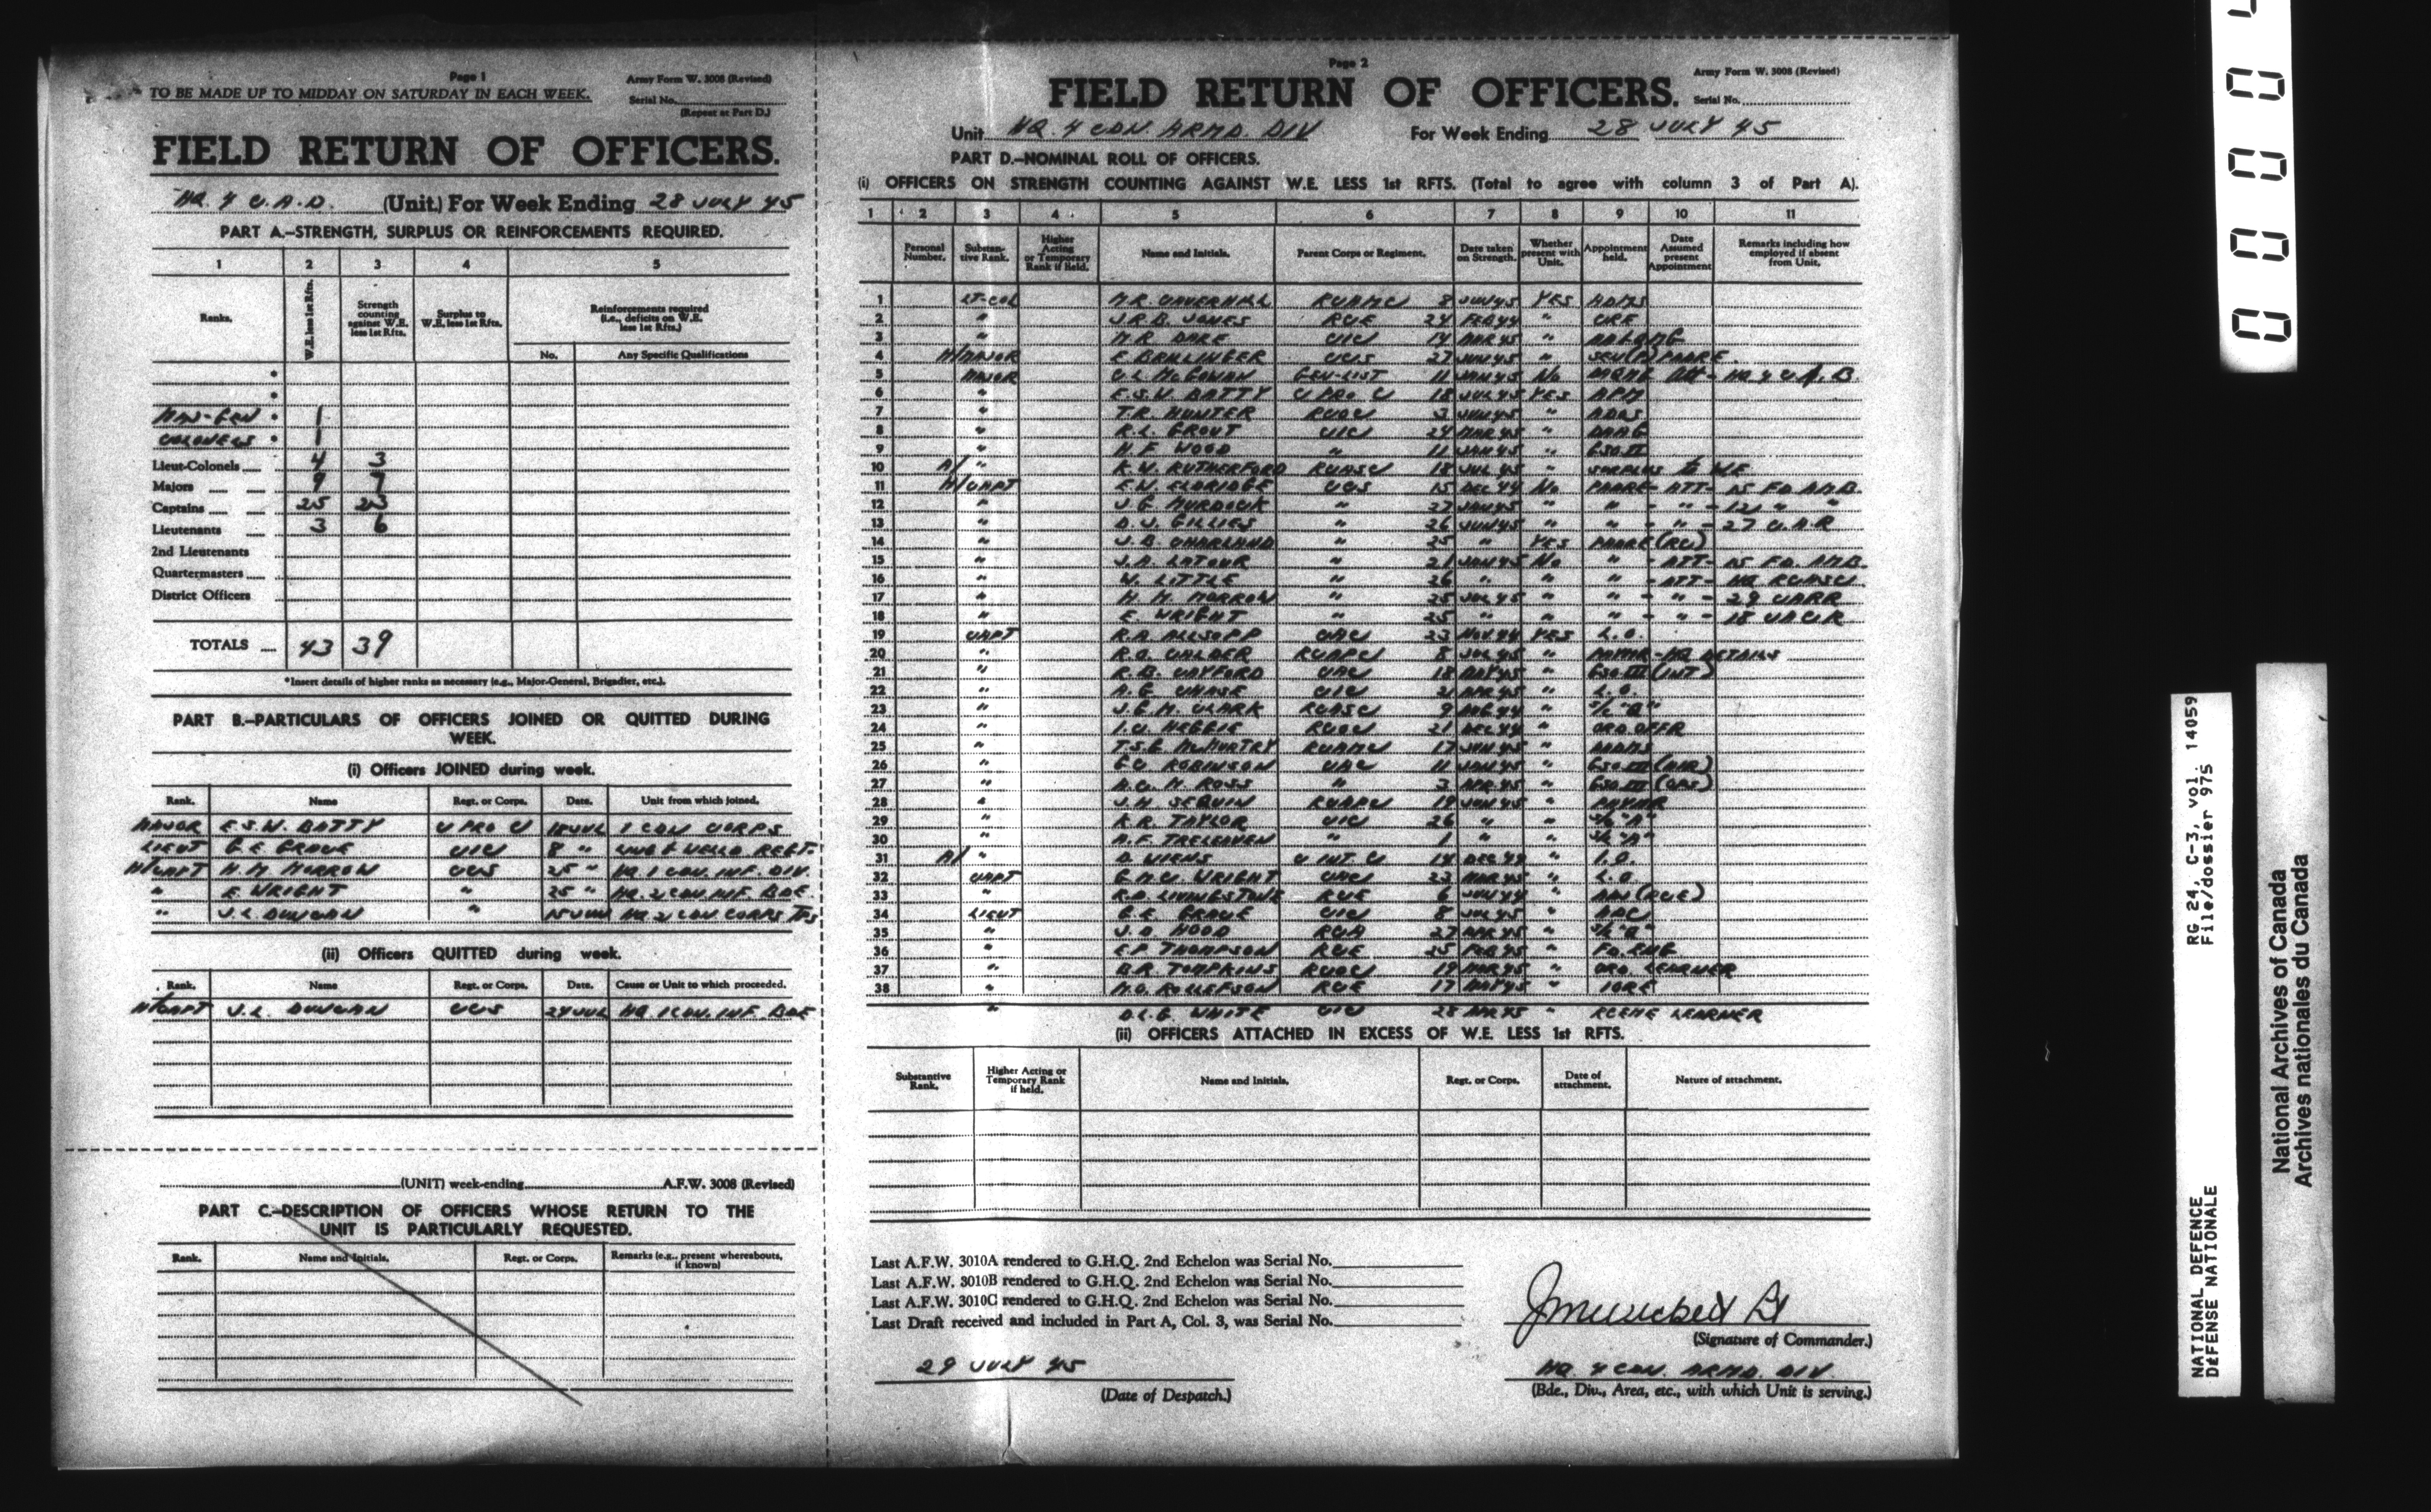 Page 1
Army Form W. 3008 (Revised)
TO BE MADE UP TO MIDDAY ON SATURDAY IN EACH WEEK.
Serial No.
(Repeat at Part D.)
FIELD RETURN OF OFFICERS.
HQ. 4 C.A.D. (Unit.) For Week Ending 28 JULY 45
PART A.—STRENGTH, SURPLUS OR REINFORCEMENTS REQUIRED.
1 2 3 4 5
Ranks. W.E. less 1st Rfts. Strength counting against W.E. less 1st Rfts. Surplus to W.E. less 1st Rfts. Reinforcements required (i.e., deficits on W.E. less 1st Rfts.)
No. Any Specific Qualifications
MAJ-GEN 1
COLONELS 1
Lieut-Colonels 4 3
Majors 9 7
Captains 25 23
Lieutenants 3 6
2nd Lieutenants
Quartermasters
District Officers
TOTALS 43 39
*Insert details of higher ranks as necessary (e.g., Major-General, Brigadier, etc.).
PART B.—PARTICULARS OF OFFICERS JOINED OR QUITTED DURING WEEK.
(i) Officers JOINED during week.
Rank. Name Regt. or Corps. Date. Unit from which joined.
MAJOR E.S.W. BATTY C PRO C 18 JUL 1 CDN CORPS
LIEUT G.E. GROVE CIC 8 " LINC & WELLD REGT.
H/CAPT H.M. MORROW CCS 25 " HQ 1 CDN. INF. DIV.
" E. WRIGHT " 25 " HQ. 2 CDN. INF. BDE.
" J.L. DUNCAN " 15 JUN HQ 2 CDN CORPS TPS
(ii) Officers QUITTED during week.
Rank. Name Regt. or Corps. Date. Cause or Unit to which proceeded.
H/CAPT J.L. DUNCAN CCS 24 JUL HQ 1 CDN. INF. BDE
(UNIT) week-ending A.F.W. 3008 (Revised)
PART C.—DESCRIPTION OF OFFICERS WHOSE RETURN TO THE UNIT IS PARTICULARLY REQUESTED.
Rank. Name and Initials. Regt. or Corps. Remarks (e.g., present whereabouts, if known)
Page 2
Army Form W. 3008 (Revised)
FIELD RETURN OF OFFICERS.
Serial No.
Unit HQ. 4 CDN. ARMD. DIV For Week Ending 28 JULY 45
PART D.—NOMINAL ROLL OF OFFICERS.
(i) OFFICERS ON STRENGTH COUNTING AGAINST W.E. LESS 1st RFTS. (Total to agree with column 3 of Part A).
1 2 3 4 5 6 7 8 9 10 11
Personal Number. Substantive Rank. Higher Acting or Temporary Rank if held. Name and Initials. Parent Corps or Regiment. Date taken on Strength. Whether present with Unit. Appointment held. Date Assumed present Appointment Remarks including how employed if absent from Unit.
1 LT-COL M.R. CAVERHILL RCAMC 8 JUN 45 YES ADMS
2 " J.R.B. JONES RCE 24 FEB 44 " CRE
3 " M.R. DARE CIC 14 MAR 45 " AA&QMG
4 H/MAJOR E. BRILLINGER CCS 27 JUN 45 " SEN(P) PADRE
5 MAJOR C.L. McGOWAN GEN-LIST 11 JAN 45 No Att- HQ 4 C.A.B.
6 " E.S.W. BATTY C PRO C 18 JUL 45 YES APM
7 " T.R. HUNTER RCOC 3 JUN 45 " ADOS
8 " R.L. GROUT CIC 24 MAR 45 " DAAG
9 " H.F. WOOD " 11 JAN 45 " GSO II
10 A/ " K.W. RUTHERFORD RCASC 18 JUL 45 " SURPLUS to WE
11 H/CAPT E.W. ELDRIDGE CCS 15 DEC 44 No PADRE - ATT - 15 FD. AMB.
12 " J.G. MURDOCK " 27 JAN 45 " " - " - 12 " "
13 " D.J. GILLIES " 26 JUN 45 " " - " - 27 C.A.R
14 " J.B. CHARLAND " 25 " YES PADRE (RC)
15 " J.A. LATOUR " 21 JAN 45 No " - ATT - 15 FD. AMB.
16 " W. LITTLE " 26 " " " - ATT - HQ RCASC.
17 " H.M. MORROW " 25 JUL 45 " " - " - 29 CARR
18 " E. WRIGHT " 25 " " " - " - 18 CACR
19 CAPT R.A. ALLSOPP CAC 23 NOV 44 YES L.O.
20 " R.O. CALDER RCAPC 8 JUL 45 " PAYMR - HQ DETAILS
21 " R.B. CAYFORD CAC 18 MAY 45 " GSO III (INT)
22 " A.G. CHASE CIC 21 APR 45 " L.O.
23 " J.G.M. CLARK RCASC 9 AUG 44 " S/C "Q"
24 " I.C. HEGGIE RCOC 21 DEC 44 " ORD. OFFR
25 " T.S.G. McMURTRY RCAMC 17 JUN 45 " DADMS
26 " E.C. ROBINSON CAC 11 JAN 45 " GSO III (AIR)
27 " A.C.M. ROSS " 3 APR 45 " GSO III (OPS)
28 " J.H. SEGUIN RCAPC 19 JUN 45 " PAYMR
29 " K.R. TAYLOR CIC 26 " " S/C "A"
30 " A.F. TRELEAVEN " 1 " " S/C "A"
31 A/ " D. WIENS C INT C 14 DEC 44 " I.O.
32 CAPT G.M.C. WRIGHT CAC 23 MAR 45 " L.O
33 " R.D. LIVINGSTONE RCE 6 JUN 44 " ADJ (RCE)
34 LIEUT G.E. GROVE CIC 8 JUL 45 " ADC
35 " J.D. HOOD RCA 27 APR 45 " S/C "Q"
36 " E.P. THOMPSON RCE 25 FEB 45 " FD. ENG
37 " B.R. TOMPKINS RCOC 19 MAR 45 " ORD. LEARNER
38 " M.O. ROLLEFSON RCE 17 MAY 45 " IORE
" D.L.G. WHITE CIC 28 APR 45 " RCEME LEARNER
(ii) OFFICERS ATTACHED IN EXCESS OF W.E. LESS 1st RFTS.
Substantive Rank. Higher Acting or Temporary Rank if held. Name and Initials. Regt. or Corps. Date of attachment. Nature of attachment.
Last A.F.W. 3010A rendered to G.H.Q. 2nd Echelon was Serial No.
Last A.F.W. 3010B rendered to G.H.Q. 2nd Echelon was Serial No.
Last A.F.W. 3010C rendered to G.H.Q. 2nd Echelon was Serial No.
Last Draft received and included in Part A, Col. 3, was Serial No.
(Signature of Commander.)
29 JULY 45
(Date of Despatch.)
HQ 4 CDN. ARMD. DIV.
(Bde., Div., Area, etc., with which Unit is serving.)
NATIONAL DEFENCE RG 24, C-3, vol. 14059
DÉFENSE NATIONALE File/dossier 975
National Archives of Canada
Archives nationales du Canada